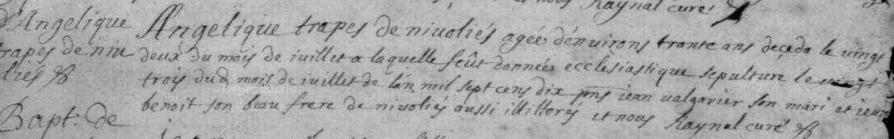 Raynal curé
d'Angelique
trapes de niuo
liés
Angelique trapes de niuoliés ageé d'enuirons trante ans deçeda le vingt
deux du mois de iuillet a laquelle feût donneé ecclesiastique sepulture le vingt
trois dud mois de iuillet de l'an mil sept cens dix pns iean ualgavier son mari et iean
benoit son beau frere de niuoliés aussi illitterés et nous Raynal curé
Bapt. de